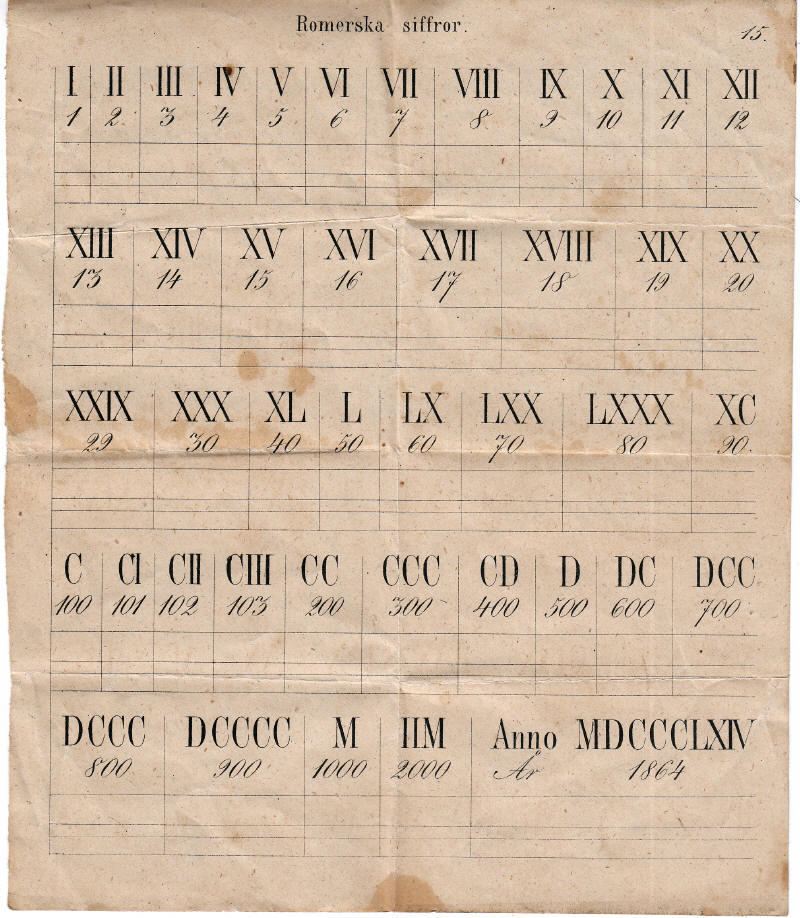 Romerska siffror.
15.
I II III IV V VI VII VIII IX X XI XII
1 2 3 4 5 6 7 8 9 10 11 12
XIII XIV XV XVI XVII XVIII XIX XX
13 14 15 16 17 18 19 20
XXIX XXX XL L LX LXX LXXX XC
29 30 40 50 60 70 80 90
C CI CII CIII CC CCC CD D DC DCC
100 101 102 103 200 300 400 500 600 700
DCCC DCCCC M IIM Anno MDCCCLXIV
800 900 1000 2000 År 1864